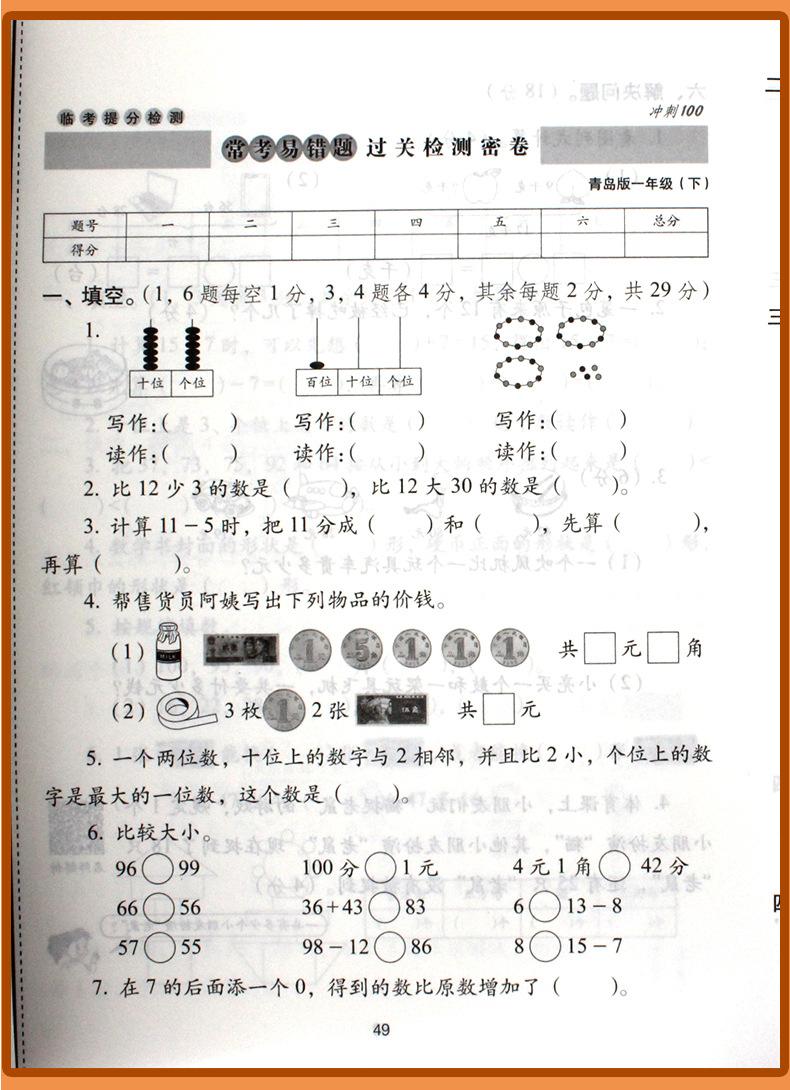 临考提分检测
冲刺100
常考易错题 过关检测密卷
青岛版一年级(下)
题号 一 二 三 四 五 六 总分
得分
一、填空。(1, 6题每空1分, 3, 4题各4分, 其余每题2分, 共29分)
1.
十位 个位 百位 十位 个位
写作:( ) 写作:( ) 写作:( )
读作:( ) 读作:( ) 读作:( )
2. 比12少3的数是( ), 比12大30的数是( )。
3. 计算11-5时, 把11分成( )和( ), 先算( ),
再算( )。
4. 帮售货员阿姨写出下列物品的价钱。
(1) MILK 1 5 1 1 1 共□元□角
(2) 3枚 1 2张 共□元
5. 一个两位数, 十位上的数字与2相邻, 并且比2小, 个位上的数
字是最大的一位数, 这个数是( )。
6. 比较大小。
96○99 100分○1元 4元1角○42分
66○56 36+43○83 6○13-8
57○55 98-12○86 8○15-7
7. 在7的后面添一个0, 得到的数比原数增加了( )。
49